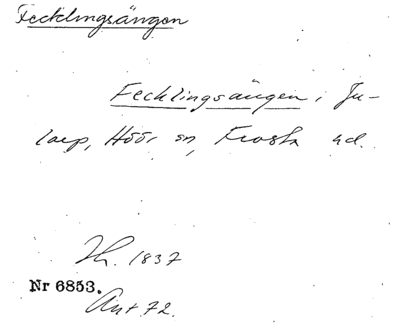 Fecklingsängen
Fecklingsängen, Ju-
larp, Höör sn, Frosta hd.
Th. 1837
Nr 6853.
Ant 72.